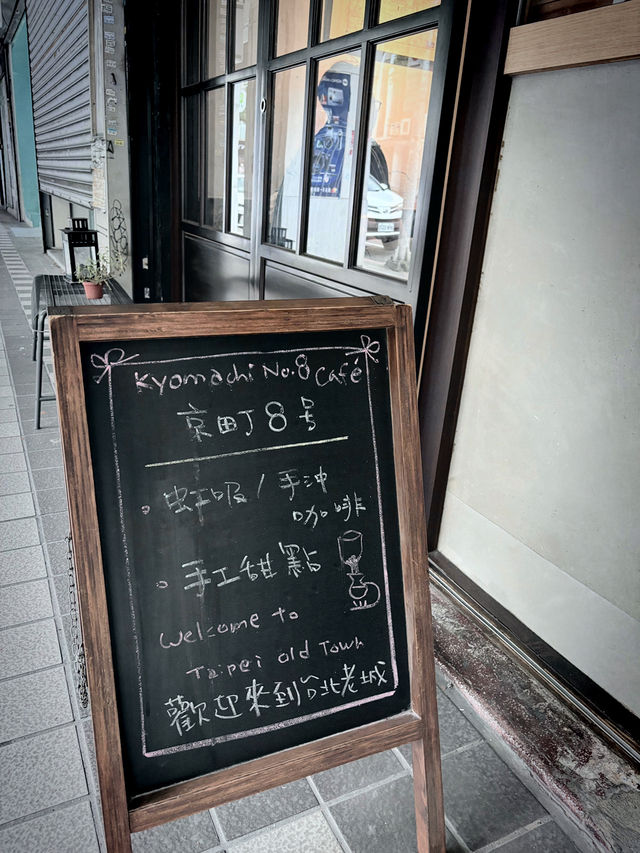 Kyomachi No.8 Café
京町8号
。虹吸/手沖
咖啡
。手工甜點
Welcome to
Taipei old Town
歡迎來到台北老城